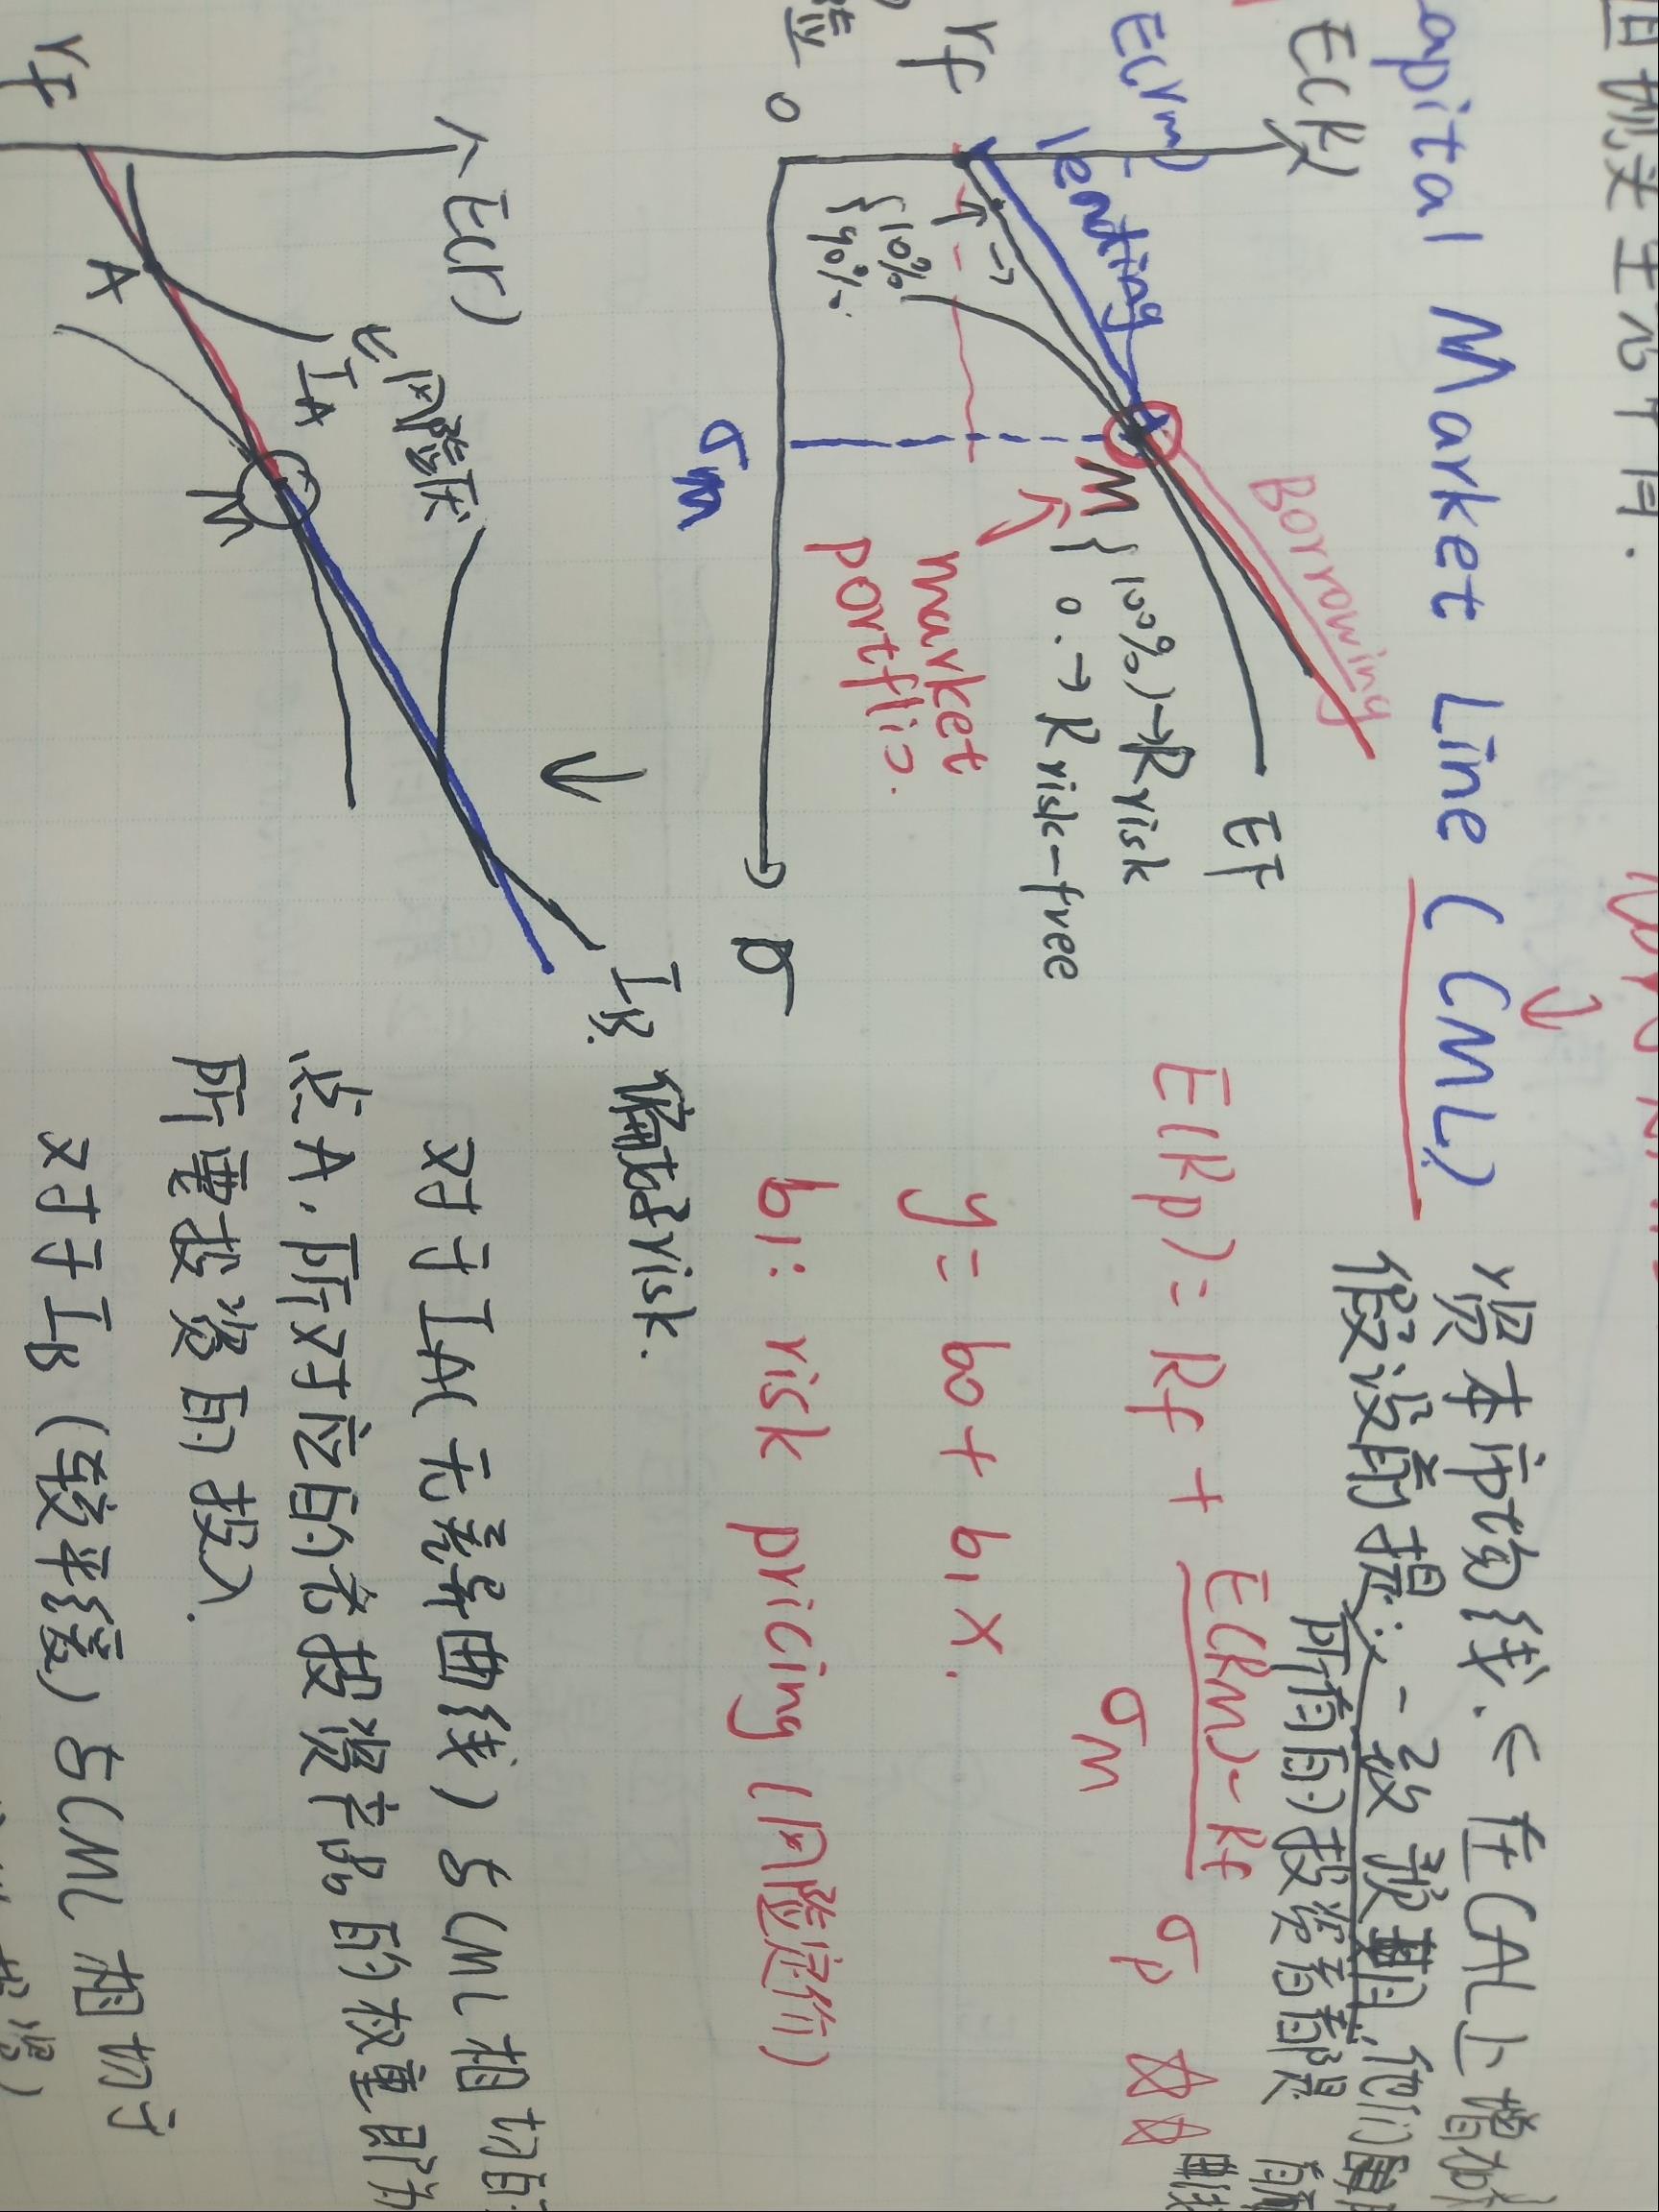 Capital Market Line (CML)
资本市场线. ← 在CAL上增加
假设前提: 一致预期,
所有的投资者都
E(R)
E(rm)
rf
0
lending
Borrowing
EF
M { 100% → R risk
0. → R risk-free
{ 10%
90%
market
portflio.
σm
σ
E(Rp) = Rf + E(RM) - Rf
σM
σp ☆☆
y = b0 + b1 x.
b1: risk pricing (风险定价)
E(r)
rf
A
IA
风险厌
M
IB. 偏好risk.
对于IA(无差异曲线)与CML相切的
点A, 所对应的者投资产品的权重即为
所需投资的投入.
对于IB (较平缓) 与CML 相切于